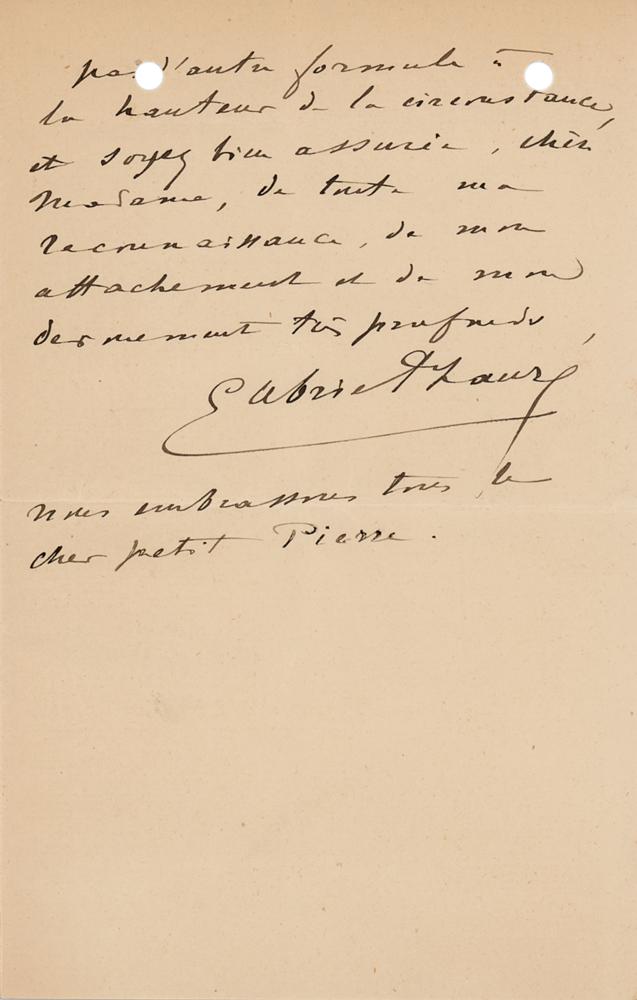 pas d'autre formule à
la hauteur de la circonstance,
et soyez bien assurée, chère
Madame, de toute ma
reconnaissance, de mon
attachement et de mon
dévouement très profonds,
Gabriel Fauré
nous embrassons tous le
cher petit Pierre.